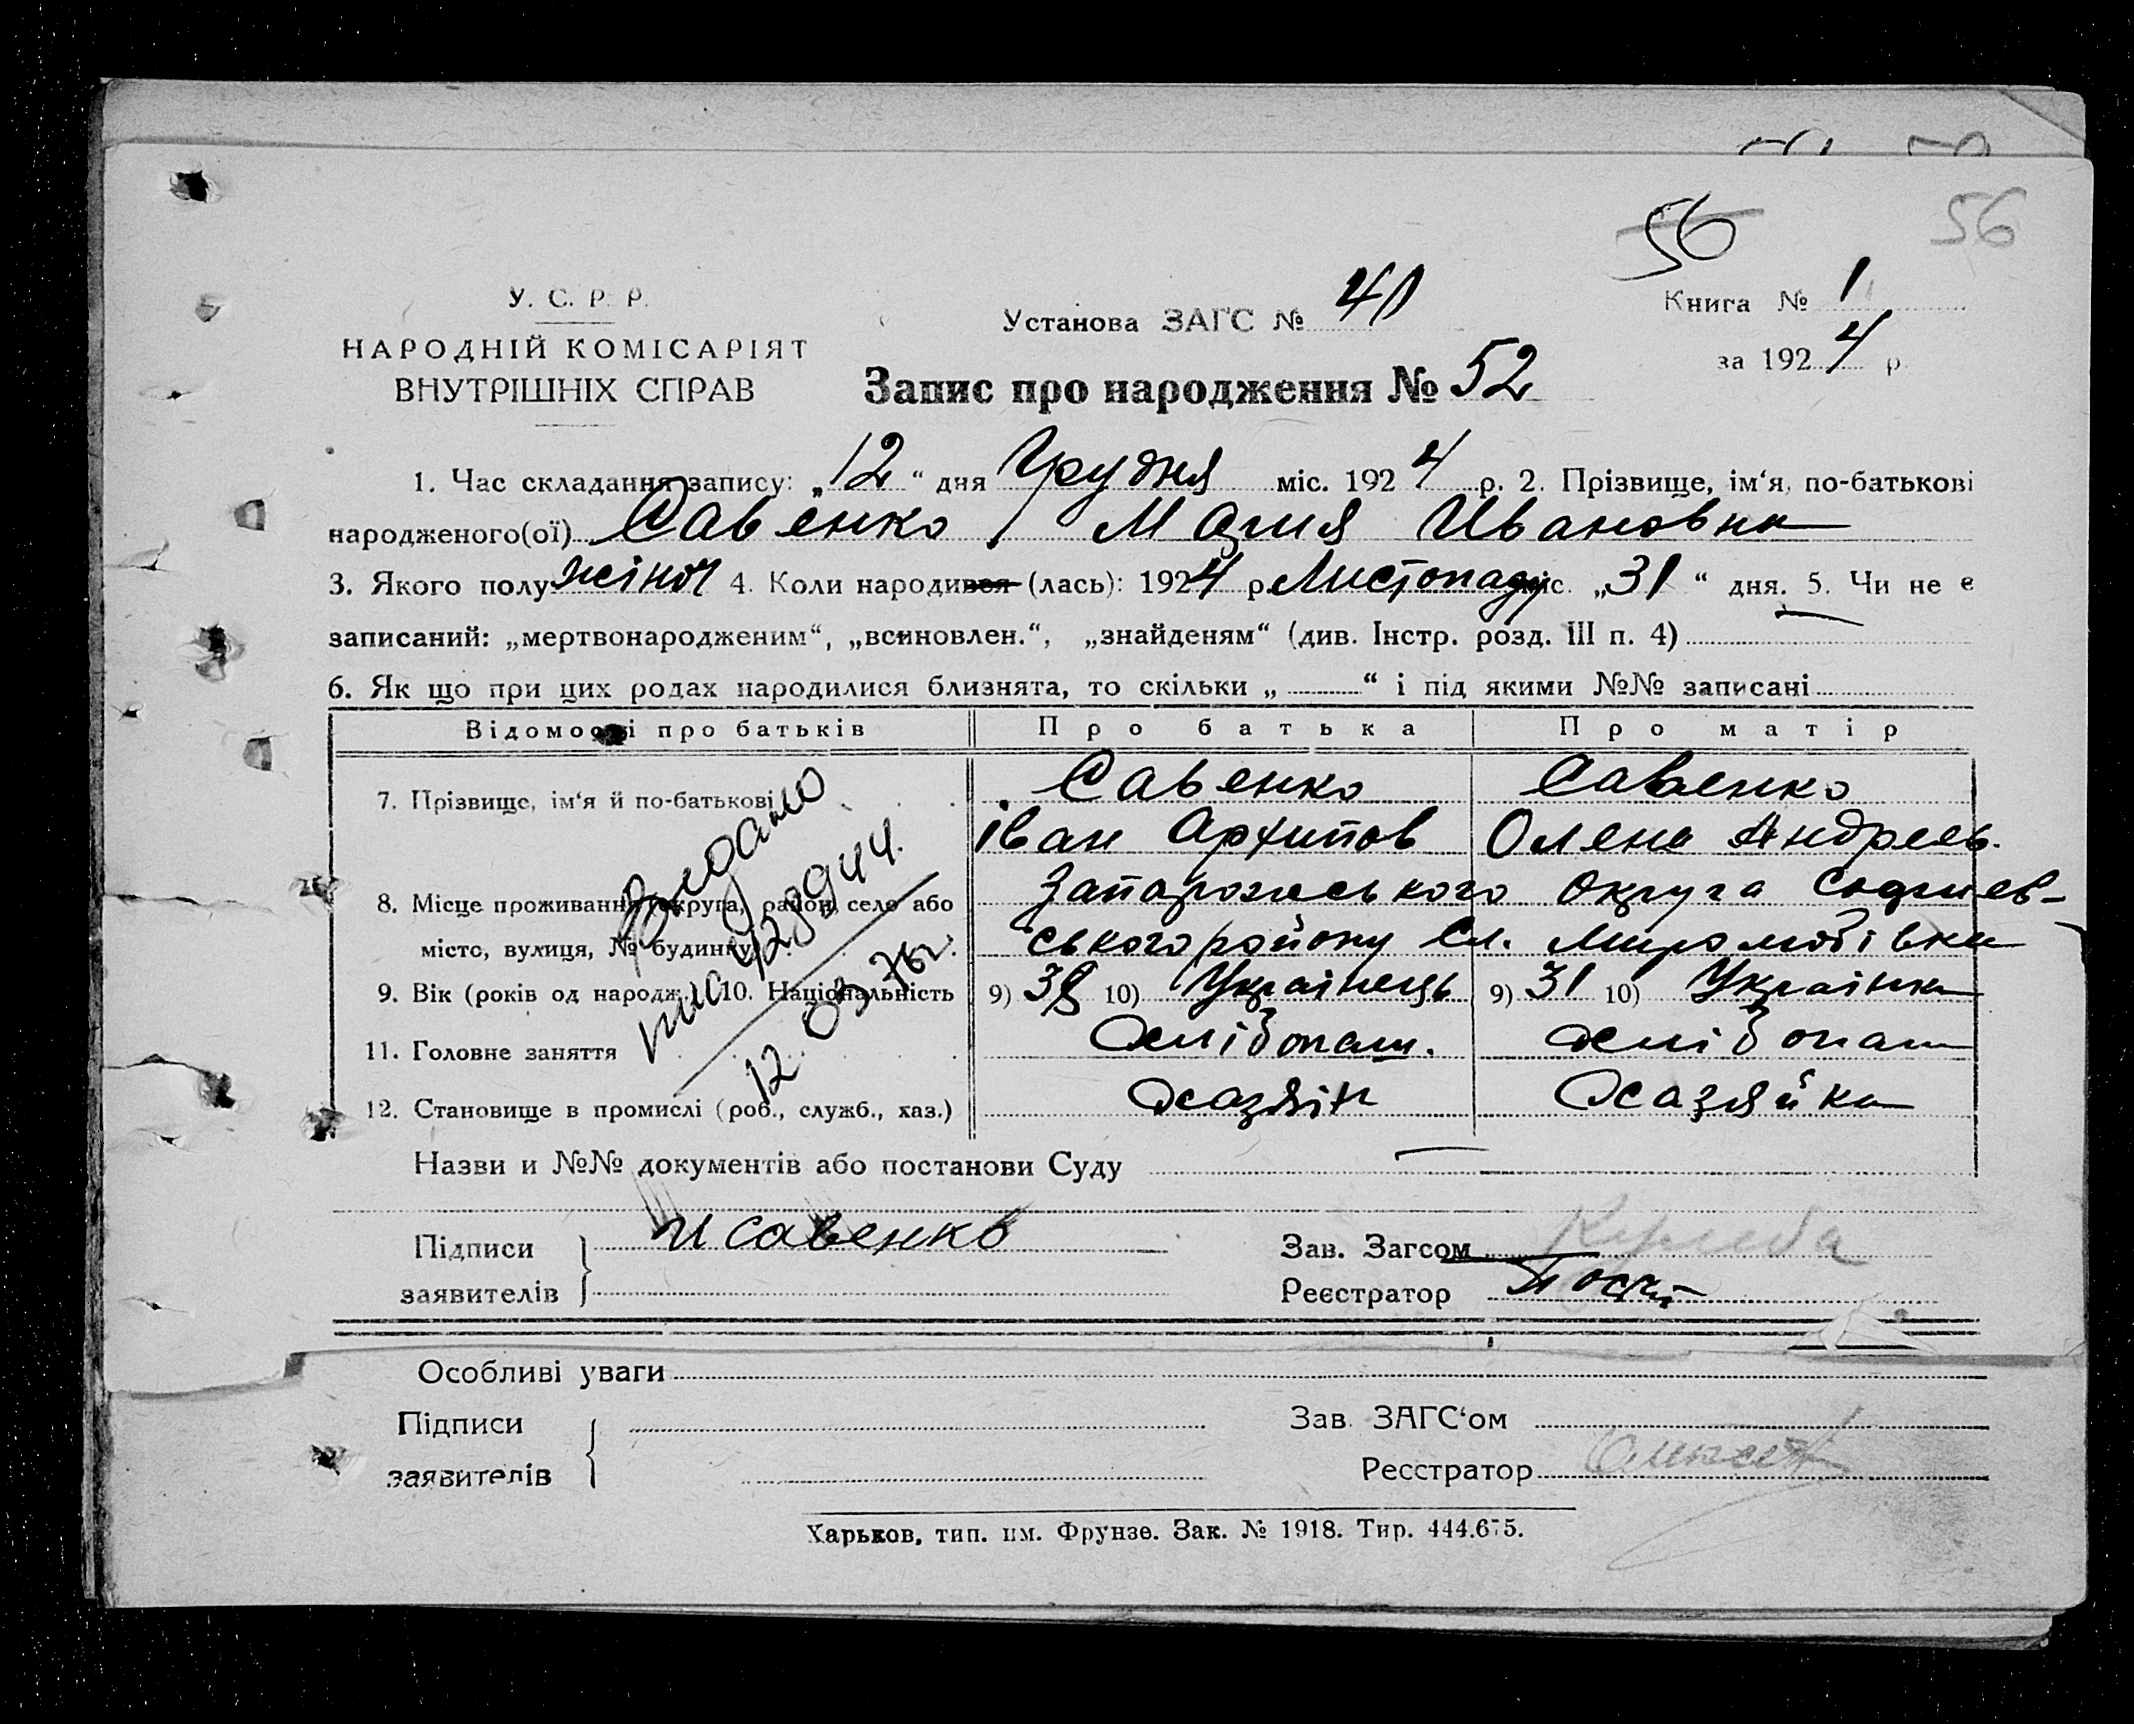 56 56
У. С. Р. Р.
НАРОДНІЙ КОМІСАРІЯТ
ВНУТРІШНІХ СПРАВ
Установа ЗАГС №
Книга № 1
за 1924 р.
Запис про народження № 52
1. Час складання запису: „12“ дня Грудня міс. 1924 р. 2. Прізвище, ім‘я, по-батькові
народженого(ої) Савенко Мария Ивановна
3. Якого полу жіноч 4. Коли народився (лась): 1924 р. Листопаду міс. „31“ дня. 5. Чи не є
записаний: „мертвонародженим“, „всиновлен.“, „знайденям“ (див. Інстр. розд. III п. 4)
6. Як що при цих родах народилися близнята, то скільки „ “ і під якими №№ записані
Відомості про батьків Про батька Про матір
7. Прізвище, ім‘я й по-батькові Савенко Савенко
Іван Архипов Олена Андреев.
8. Місце проживання (округа, район, село або Запарожського округа Софиев-
місто, вулиця, № будинку) ського району Сл. Миролюбівка
9. Вік (років од народж.) 10. Національність 9) 38 10) Українець 9) 31 10) Українка
11. Головне заняття хлібопаш. хлібопаш
12. Становище в промислі (роб., служб., хаз.) хазяін хазяйка
Видано
12 03 76г.
Назви и №№ документів або постанови Суду
Підписи И Савенко Зав. Загсом
заявителів Реєстратор
Особливі уваги
Підписи Зав. ЗАГС‘ом
заявителів Реєстратор
Харьков, тип. им. Фрунзе. Зак. № 1918. Тир. 444.675.